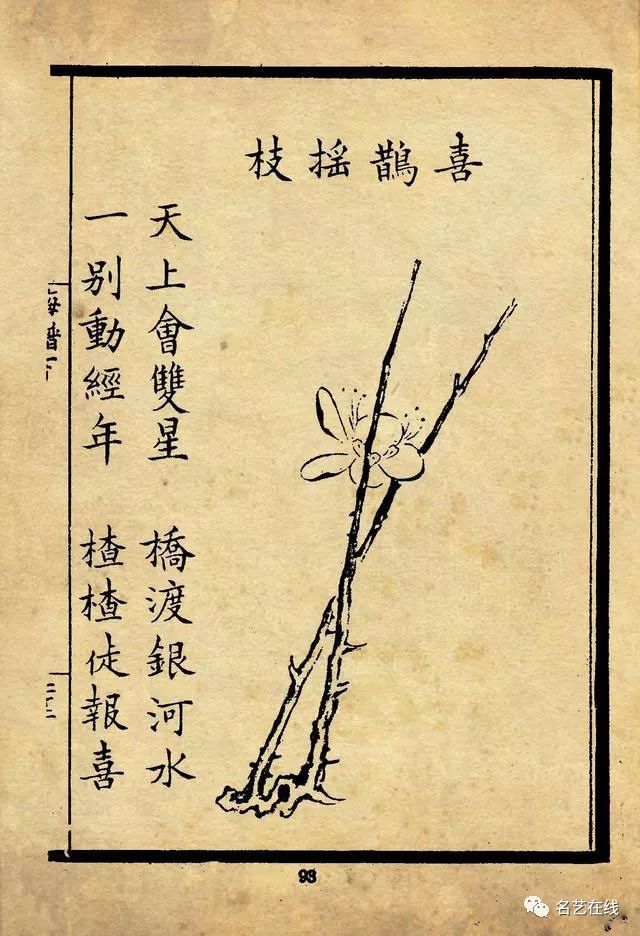 喜鵲搖枝
天上會雙星　橋渡銀河水
一別動經年　楂楂徒報喜
梅譜下
93
名艺在线